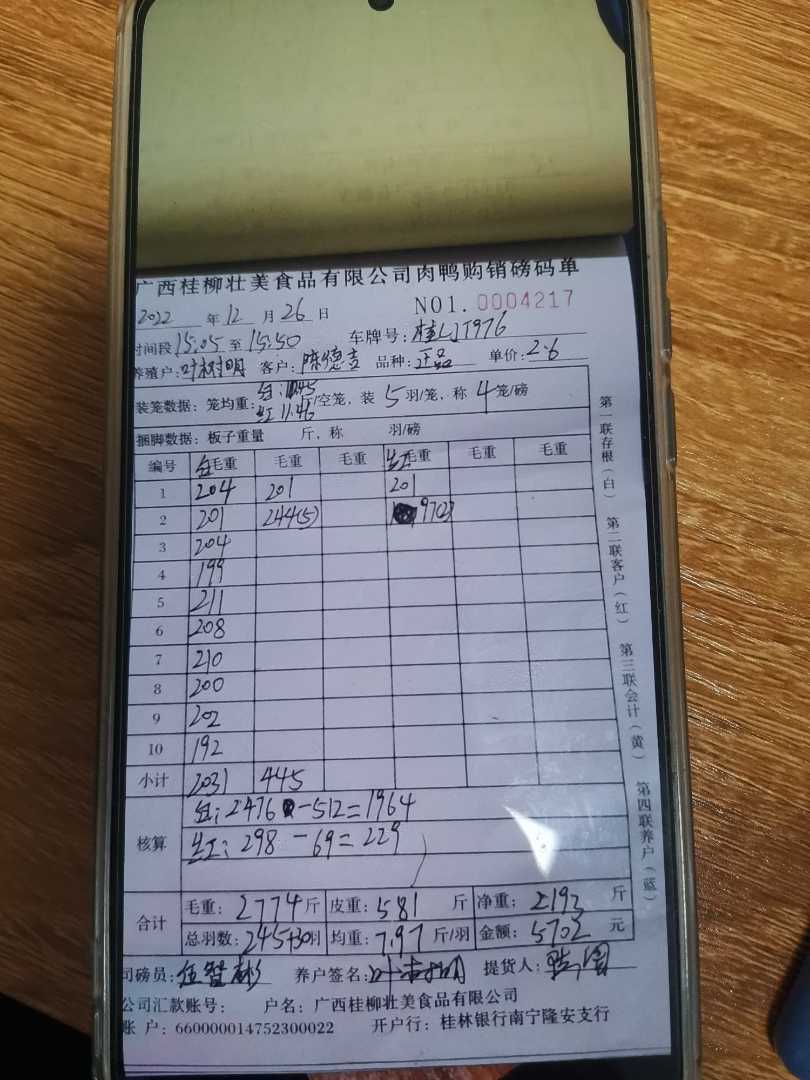 广西桂柳壮美食品有限公司肉鸭购销磅码单
2022 年 12 月 26 日 NO1. 0004217
时间段 15:05 至 15:50 车牌号: 桂LJT976
养殖户: 叶树明 客户: 陈德吉 品种: 正品 单价: 2.6
装笼数据: 笼均重: 红 11.46 /空笼, 装 5 羽/笼, 称 4 笼/磅
捆脚数据: 板子重量 斤, 称 羽/磅
编号 毛重 毛重 毛重 红毛重 毛重 毛重
1 204 201 201
2 201 244(5) 97(2)
3 204
4 199
5 211
6 208
7 210
8 200
9 202
10 192
小计 2031 445
核算 2476 -512=1964
红: 298 -69=229
合计 毛重: 2774 斤 皮重: 581 斤 净重: 2193 斤
总羽数: 245+30羽 均重: 7.97 斤/羽 金额: 5702 元
司磅员: 养户签名: 叶树明 提货人:
公司汇款账号: 户名: 广西桂柳壮美食品有限公司
账 户: 660000014752300022 开户行: 桂林银行南宁隆安支行
第一联存根(白) 第二联客户(红) 第三联会计(黄) 第四联养户(蓝)